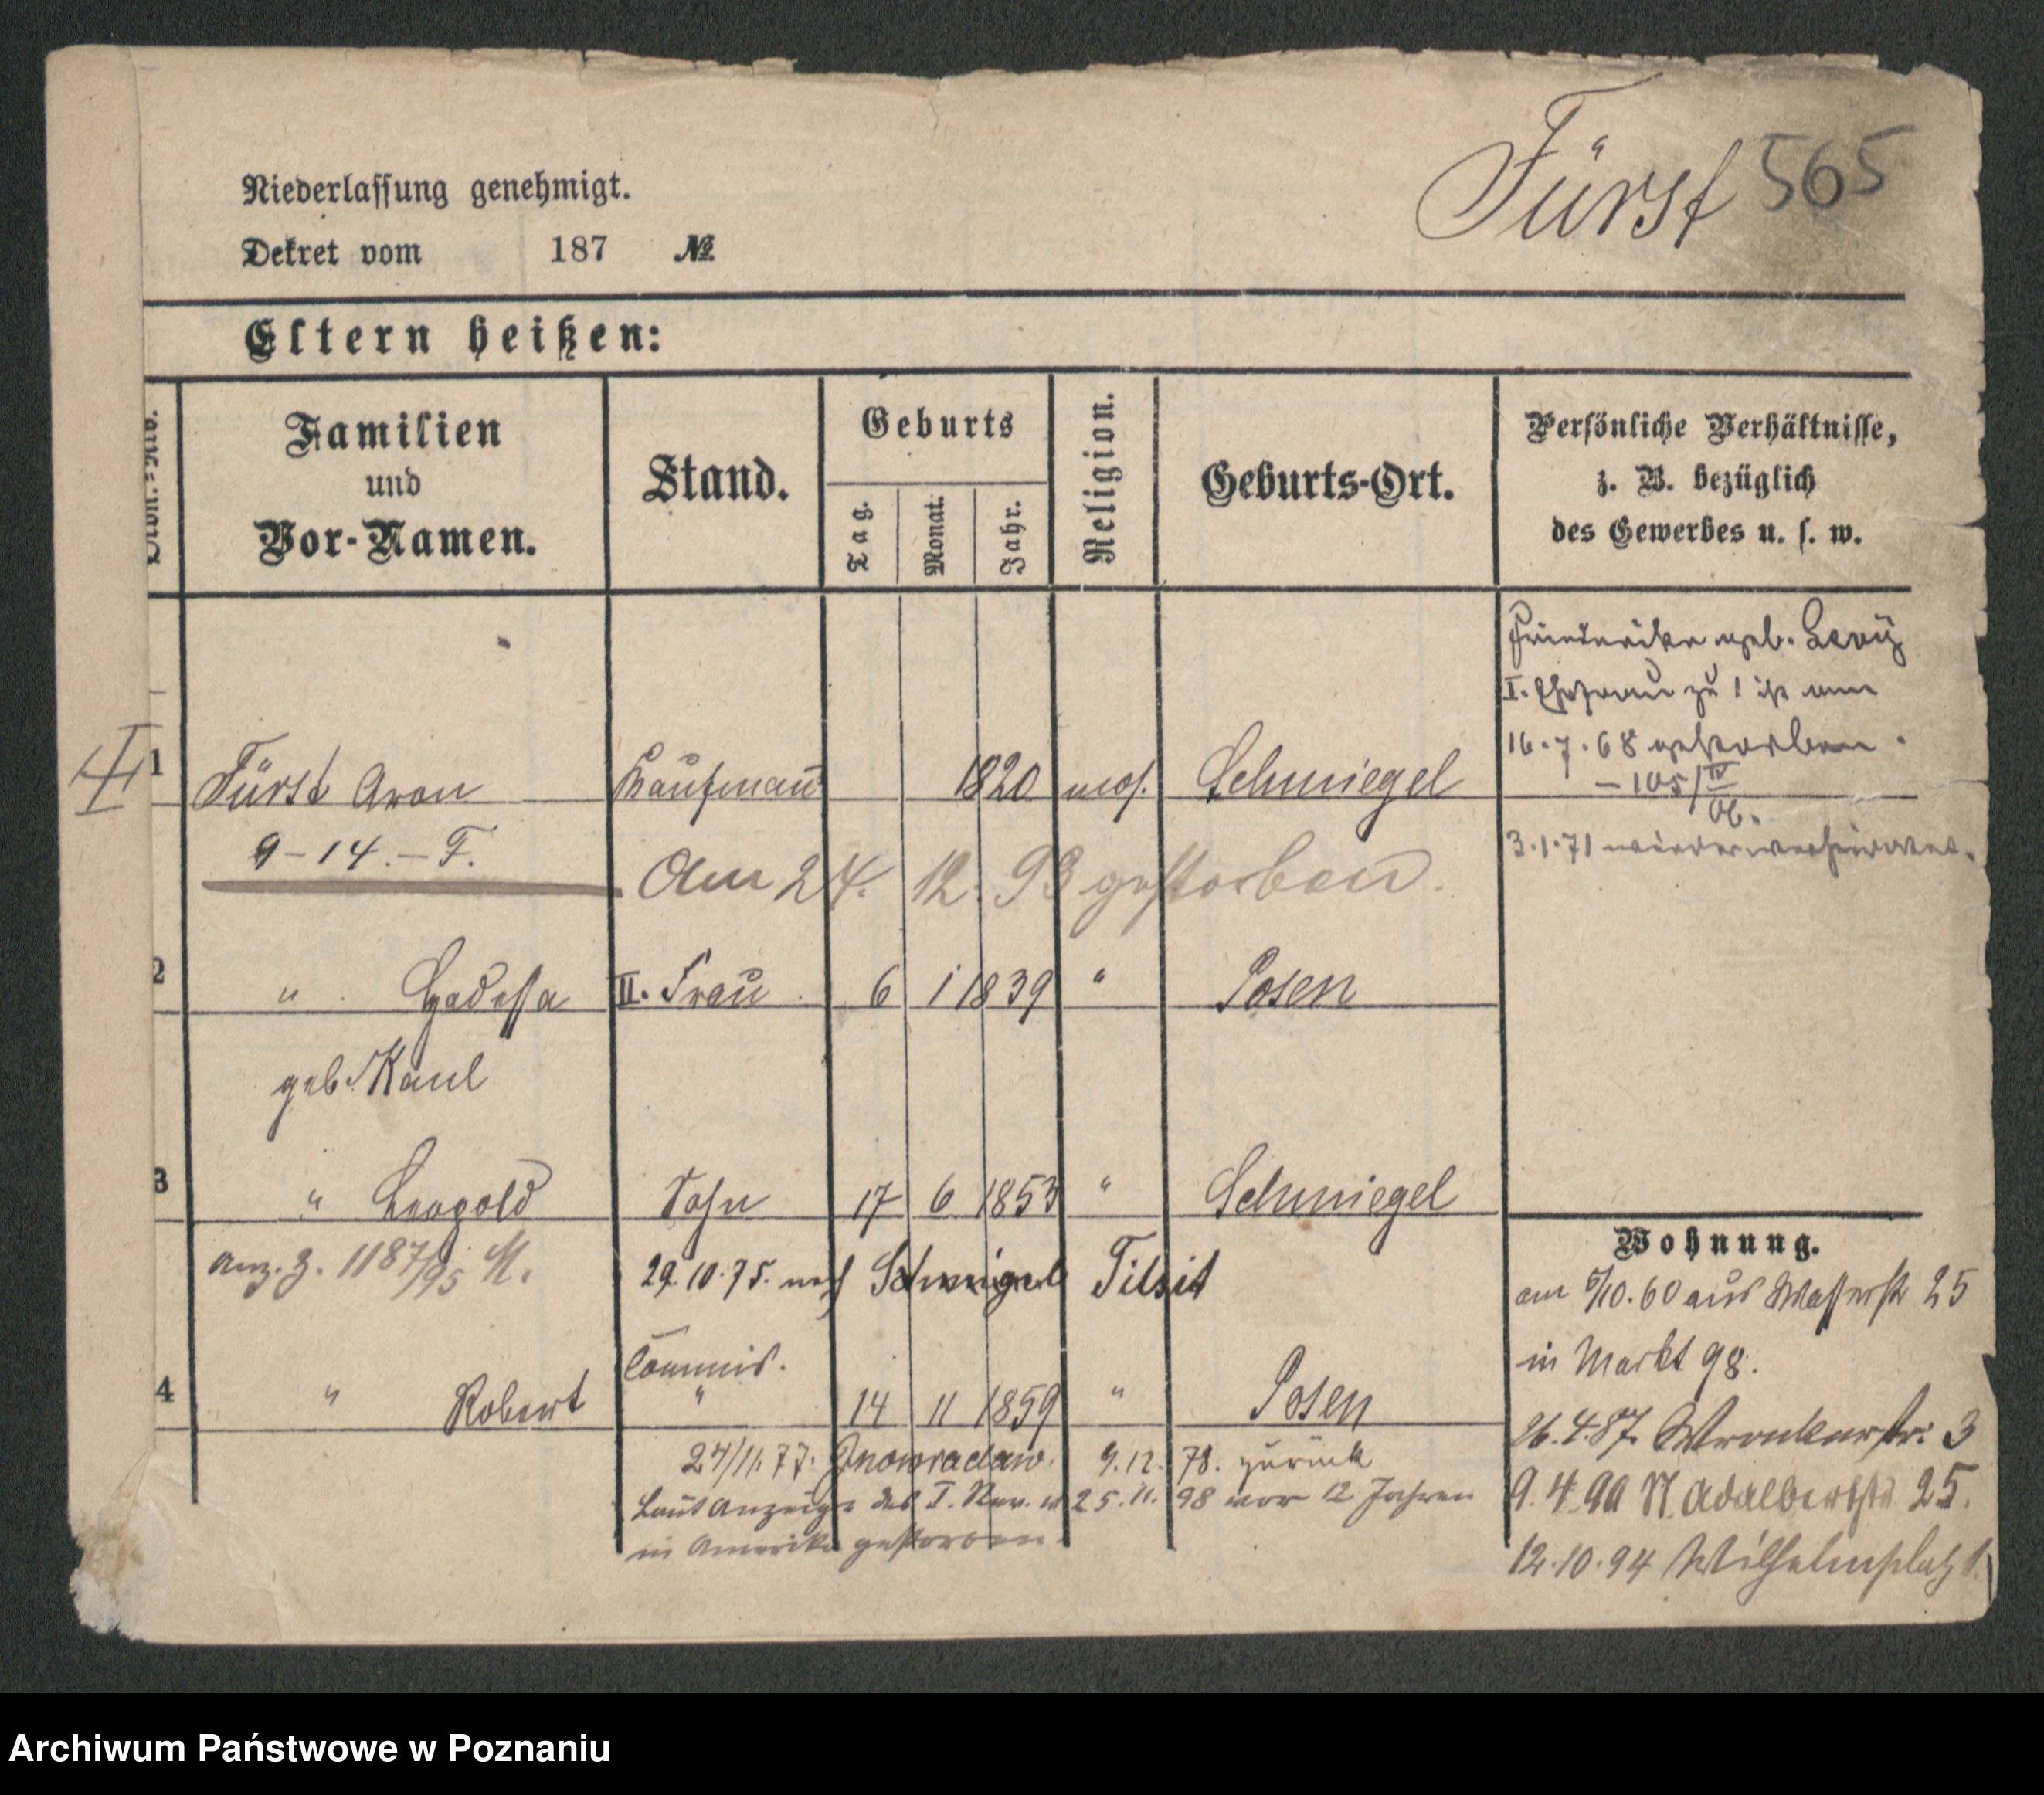 Fürst 565
Niederlassung genehmigt.
Dekret vom 187 №.
Eltern heißen:
Familien
und
Vor-Namen.
Stand.
Geburts
Tag.
Monat.
Jahr.
Religion.
Geburts-Ort.
Persönliche Verhältnisse,
z. B. bezüglich
des Gewerbes u. s. w.
Friederike geb. Levÿ
I. Ehefrau zu 1 ist am
16.7.68 gestorben.
3.1.71 wiederverheiratet.
1 Fürst Aron Kaufmann 1820 mos. Schmiegel
9-14.-F.
Am 24. 12. 93 gestorben.
2 " II. Frau 6 1 1839 " Posen
geb. Kaul
3 " Leopold Sohn 17 6 1853 " Schmiegel
Anz. 3. 1187/95 M.
29.10.75. nach Schmiegel Tilsit
Commis.
4 " Robert " 14 11 1859 " Posen
24/11.77. Inowraclaw. 9.12.78. zurück
Laut Anzeige des I. Rev. v 25.11.98 vor 12 Jahren
in Amerika gestorben
Wohnung.
am 5/10.60 aus Wasserstr 25
in Markt 98.
26.4.87. Wronkerstr. 3
9.4.90 St. Adalbertstr 25.
12.10.94 Wilhelmsplatz 1.
Archiwum Państwowe w Poznaniu